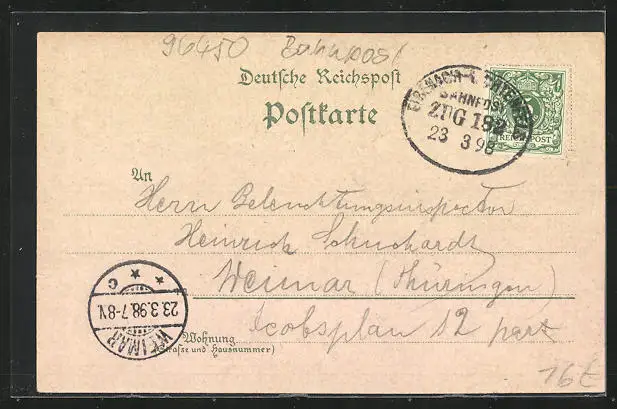 96450 Bahnpost
Deutsche Reichspost
Postkarte
BAHNPOST
ZUG 182
23 3 98
REICHSPOST
An
Herrn Beleuchtungsinspector
Heinrich Schuchardt
Weimar (Thüringen)
Jacobsplan 12 part
WEIMAR
23.3.98.7-8V.
* * C
Wohnung
(Straße und Hausnummer)
16E